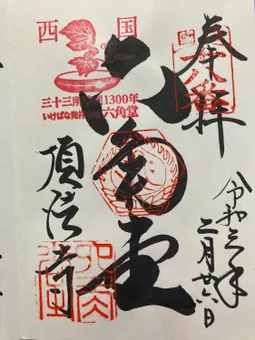 奉拝
令和三年
二月廿六日
六角堂
西国
三十三所
1300年
いけばな発祥の地六角堂
頂法寺